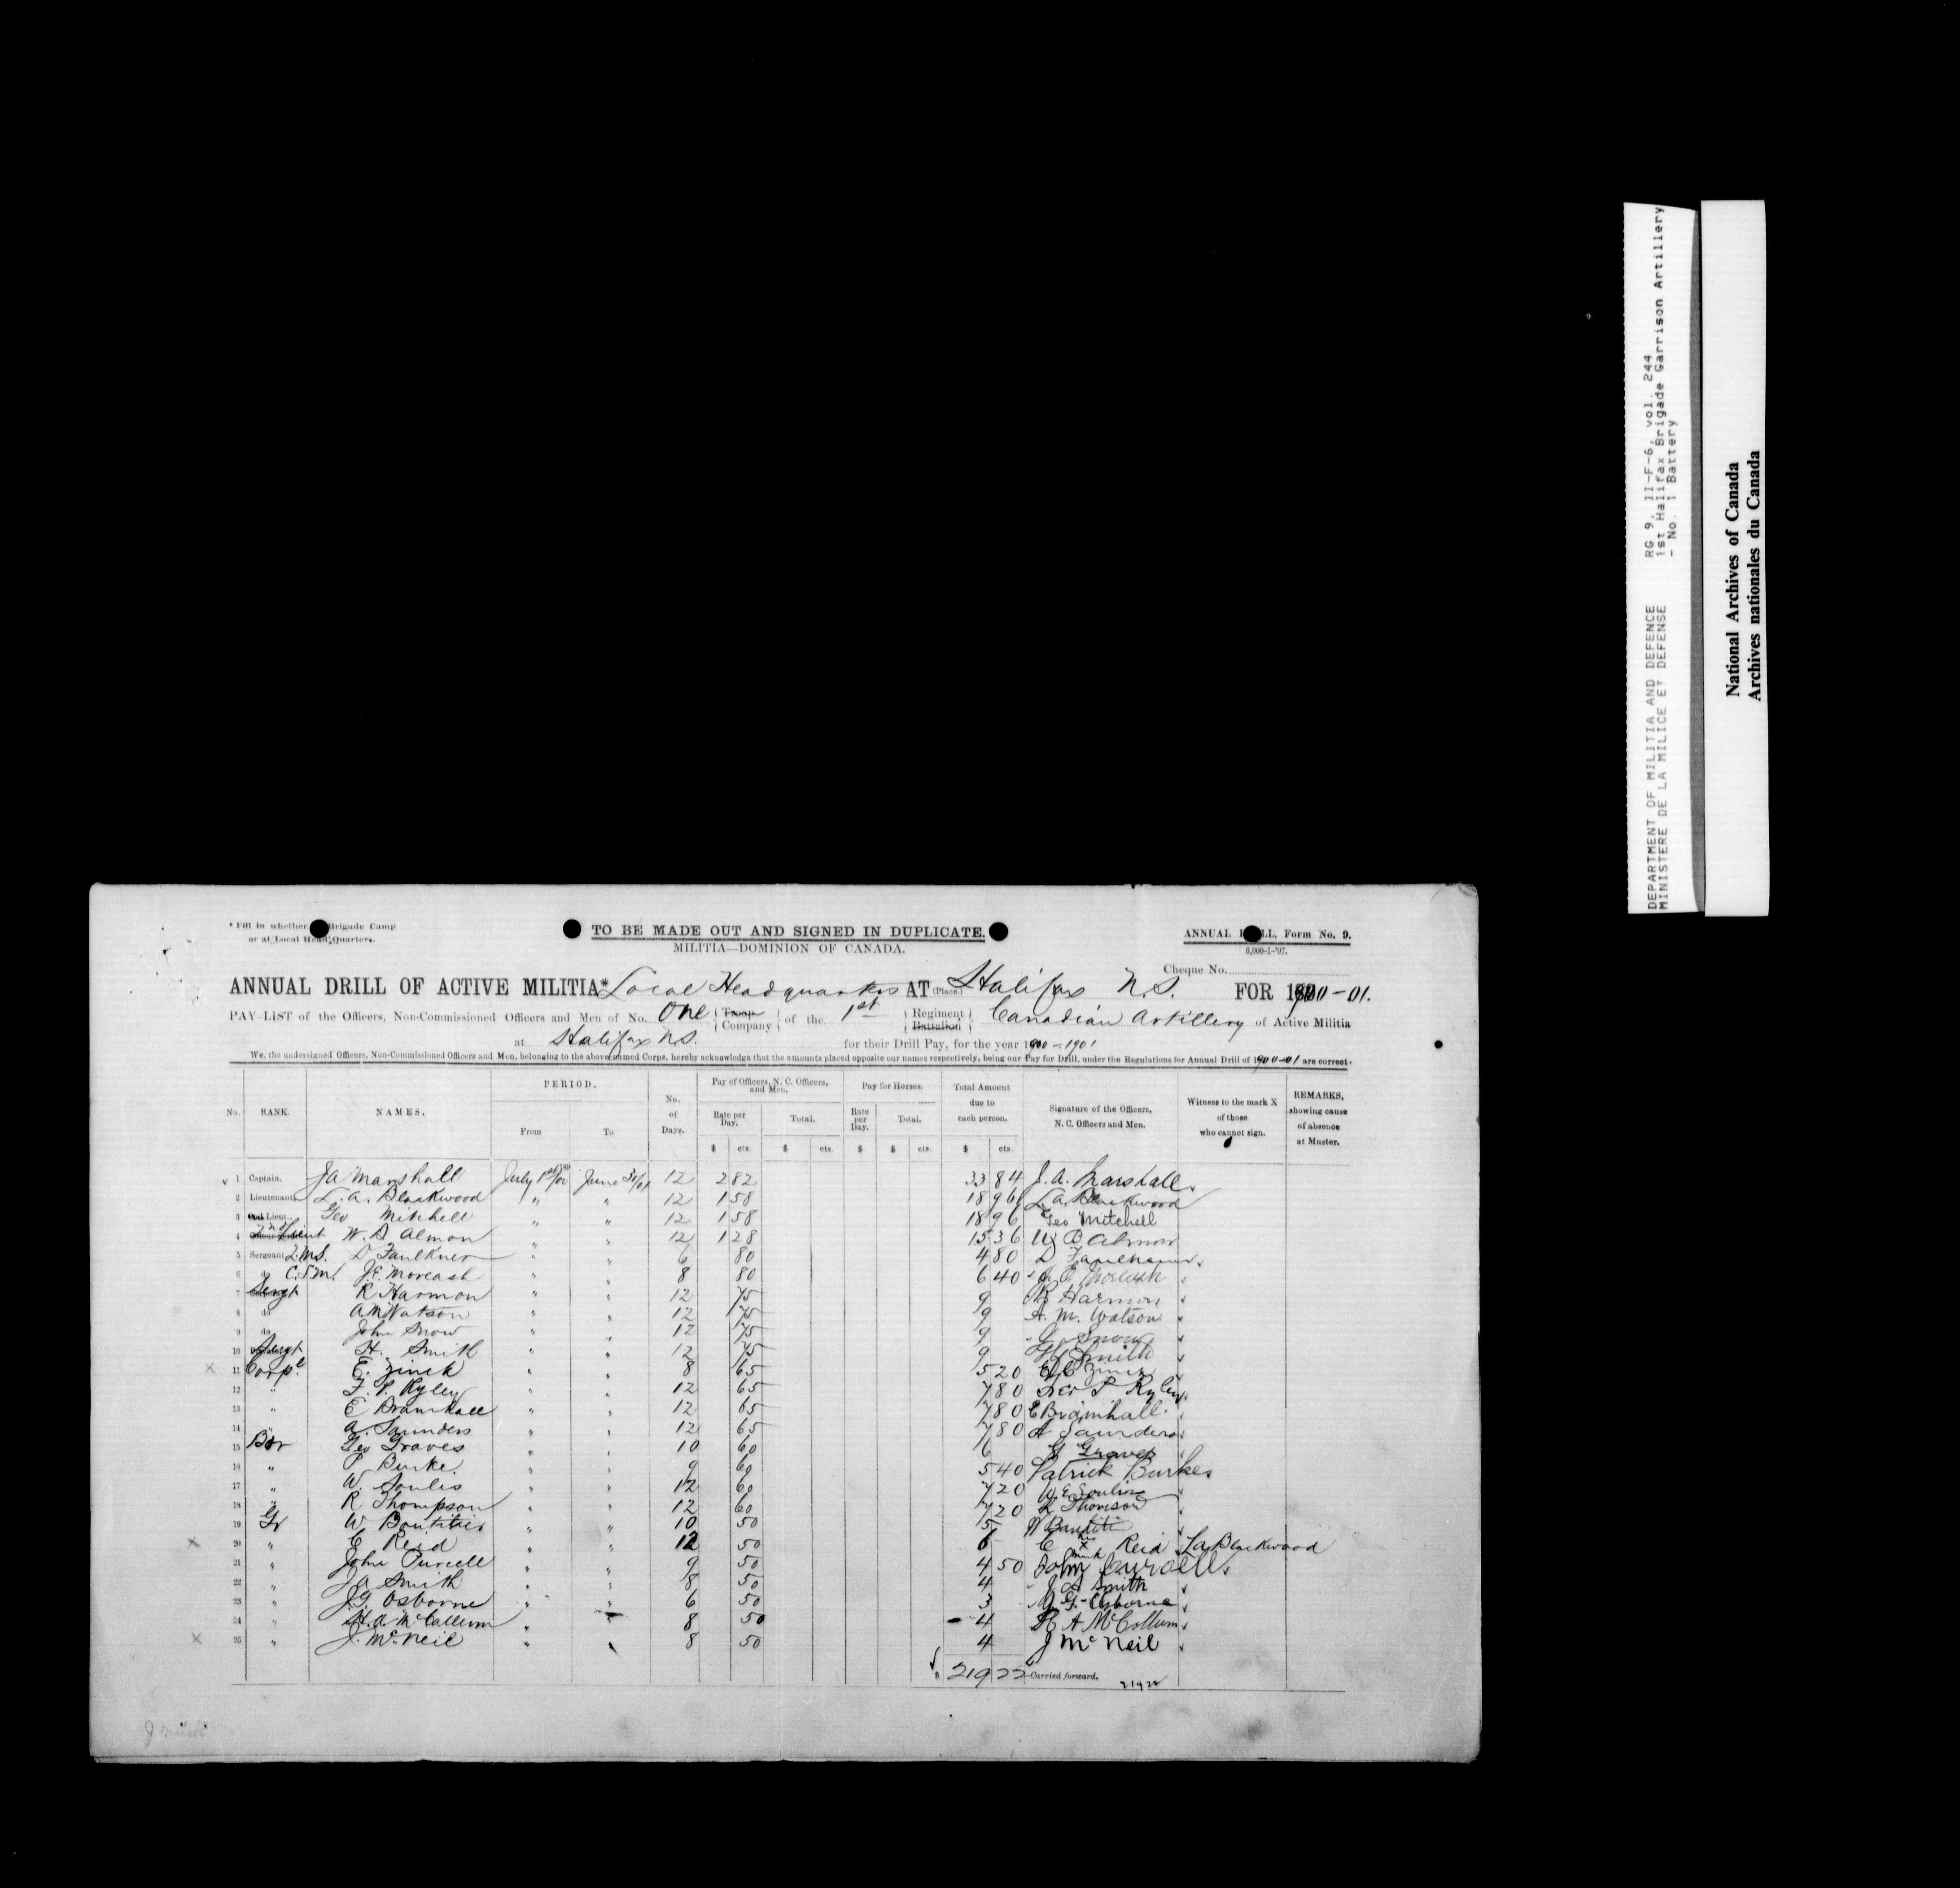 * Fill in whether Brigade Camp
or at Local Head Quarters.
TO BE MADE OUT AND SIGNED IN DUPLICATE.
MILITIA—DOMINION OF CANADA.
ANNUAL DRILL, Form No. 9.
6,000-1-'97.
Cheque No.
ANNUAL DRILL OF ACTIVE MILITIA* Local Headquarters AT (Place.) Halifax N.S. FOR 1900-01.
PAY-LIST of the Officers, Non-Commissioned Officers and Men of No. One Troop Company of the 1st Regiment Battalion Canadian Artillery of Active Militia
at Halifax N.S. for their Drill Pay, for the year 1900-1901
We, the undersigned Officers, Non-Commissioned Officers and Men, belonging to the above named Corps, hereby acknowledge that the amounts placed opposite our names respectively, being our Pay for Drill, under the Regulations for Annual Drill of 1900-01 are correct.
No. RANK. NAMES. PERIOD. From To No. of Days. Pay of Officers, N. C. Officers, and Men. Rate per Day. $ cts. Total. $ cts. Pay for Horses. Rate per Day. $ Total. $ cts. Total Amount due to each person. $ cts. Signature of the Officers, N. C. Officers and Men. Witness to the mark X of those who cannot sign. REMARKS, showing cause of absence at Muster.
1 Captain. J A Marshall July 1st/00 June 30/01 12 2 82 33 84 J. A. Marshall
2 Lieutenant L. A. Blackwood " " 12 1 58 18 96 L A Blackwood
3 Lieut. Geo Mitchell " " 12 1 58 18 96 Geo Mitchell
4 2nd Lieut W. B Almon " " 12 1 28 15 36 W B Almon
5 Sergeant Q.M.S. D Faulkner " " 6 80 4 80 D Faulkner
6 do C.S.M. J.E. Moreash " " 8 80 6 40 J E Moreash
7 Sergt R Harmon " " 12 75 9 R Harmon
8 do A M Watson " " 12 75 9 A. M. Watson
9 do John Snow " " 12 75 9 J Snow
10 Sergt H. Smith " " 12 75 9 H Smith
11 Corpl E. Zinck " " 8 65 5 20 E Zinck
12 " F. P. Ryley " " 12 65 7 80 Fred P Ryley
13 " E Bramhall " " 12 65 7 80 E Bramhall
14 " A. Saunders " " 12 65 7 80 A Saunders
15 Bdr Geo Graves " " 10 60 6 G Graves
16 " P Burke " " 9 60 5 40 Patrick Burke
17 " W. Soulis " " 12 60 7 20 W. E Soulis
18 " R Thompson " " 12 60 7 20 R Thomson
19 Gr W Boutilier " " 10 50 5
20 " C Reid " " 12 50 6 C his X mark Reid L A Blackwood
21 " John Purcell " " 9 50 4 50 John Purcell
22 " J A Smith " " 8 50 4 J A Smith
23 " J.G. Osborne " " 6 50 3 J. G. Osborne
24 " H. A. McCallum " " 8 50 4 H A McCollum
25 " J. McNeil " " 8 50 4 J McNeil
$ 219 22 Carried forward.
219 22
DEPARTMENT OF MILITIA AND DEFENCE RG 9, II-F-6, vol. 244
MINISTERE DE LA MILICE ET DEFENSE 1st Halifax Brigade Garrison Artillery
- No. 1 Battery
National Archives of Canada
Archives nationales du Canada